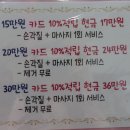 15만원 카드 10%적립 현금 17만원
- 손관절 + 마사지 1회 서비스
20만원 카드 10%적립 현금 24만원
- 손관절 + 마사지 1회 서비스
- 제거 무료
30만원 카드 10%적립 현금 36만원
- 손관절 + 마사지 1회 서비스
- 제거 무료